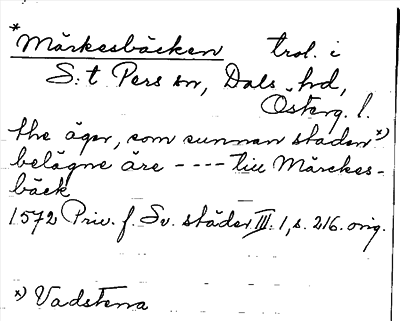 *Märkesbäcken trol. i
S:t Pers sn, Dals hd,
Österg. l.
the äger, som sunnan staden*)
belägne äre ---- till Märckes-
bäck
1572 Priv. f. Sv. städer III: 1, s. 216. orig.
*) Vadstena